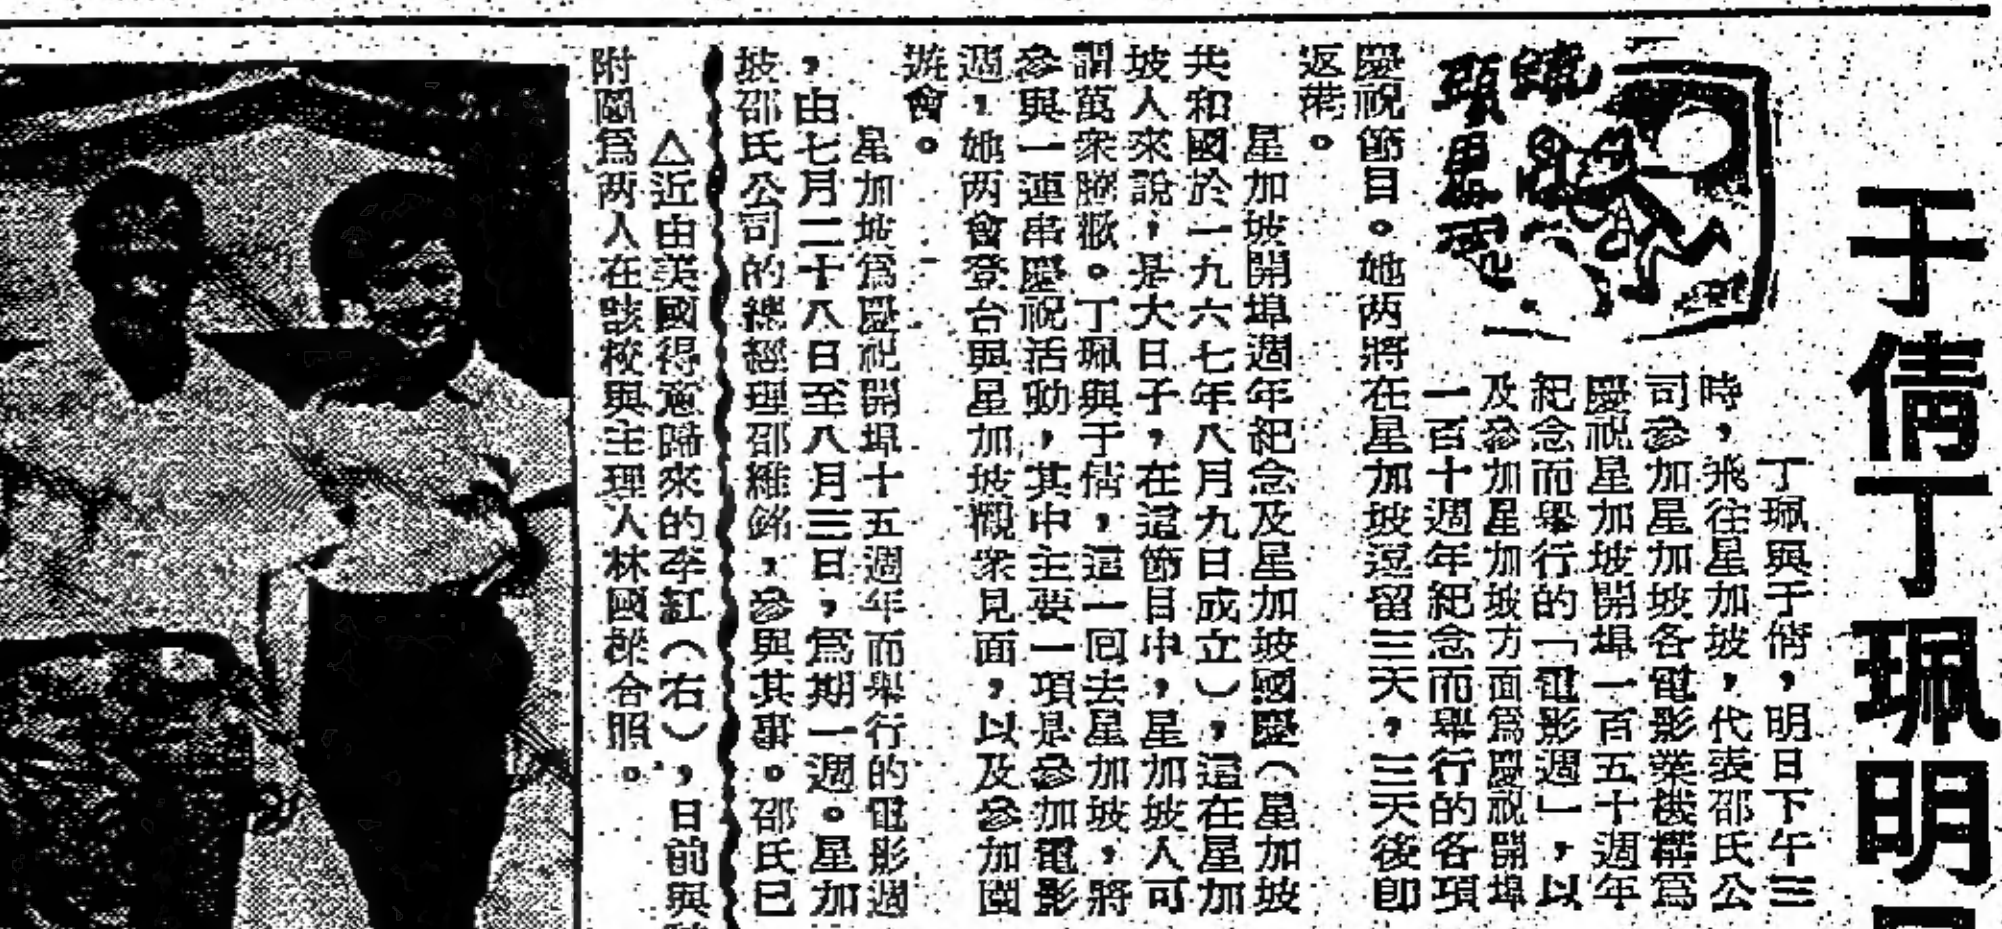 于倩丁珮明
丁珮與于倩，明日下午三
時，飛往星加坡，代表邵氏公
司參加星加坡各電影業機構為
慶祝星加坡開埠一百五十週年
紀念而舉行的「電影週」，以
及參加星加坡方面為慶祝開埠
一百十週年紀念而舉行的各項
慶祝節目。她两將在星加坡逗留三天，三天後即
返港。
星加坡開埠週年紀念及星加坡國慶（星加坡
共和國於一九六七年八月九日成立），這在星加
坡人來說，是大日子，在這節目中，星加坡人可
謂萬衆騰歡。丁珮與于倩，這一囘去星加坡，將
參與一連串慶祝活動，其中主要一項是參加電影
週，她两會登台與星加坡觀衆見面，以及參加園
遊會。
星加坡為慶祝開埠十五週年而舉行的電影週
，由七月二十八日至八月三日，為期一週。星加
坡邵氏公司的總經理邵維銘，參與其事。邵氏已
△近由美國得意歸來的李紅（右），日前與
附圖為两人在該校與主理人林國樑合照。